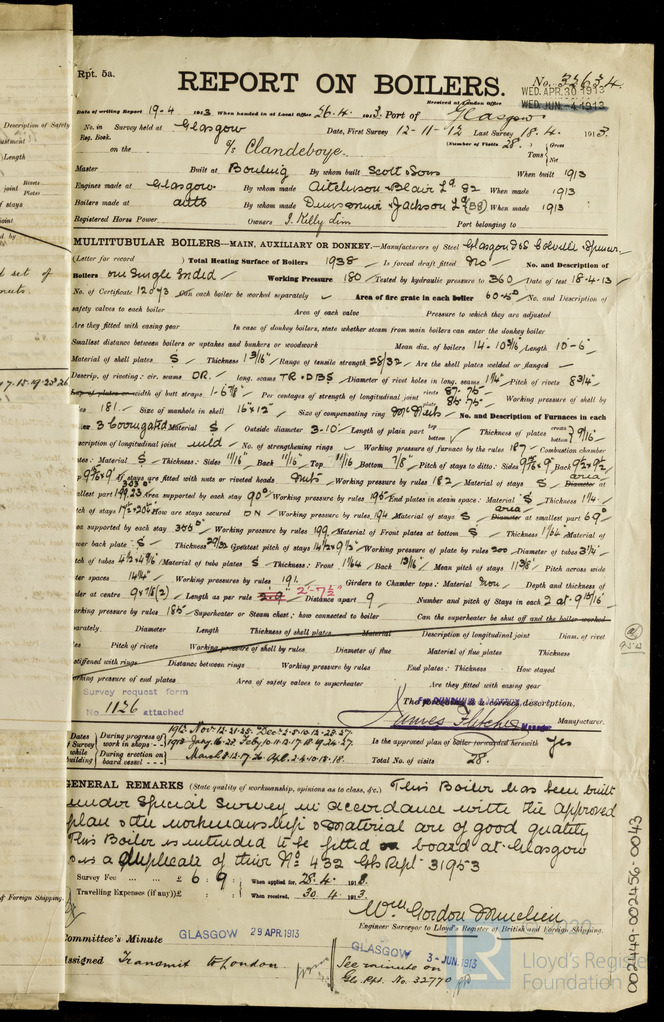 Rpt. 5a.
REPORT ON BOILERS.
No. 32634
WED. APR. 30 1913
WED. JUN. 4 1913
Received at London Office
Date of writing Report 19-4 1913 When handed in at Local Office 26.4. 1913 Port of Glasgow
No. in Reg. Book. Survey held at Glasgow Date, First Survey 12-11-12 Last Survey 18.4. 1913.
(Number of Visits 28.) Gross Tons Net
on the S/S Clandeboye.
Master Built at Bowling By whom built Scott & Sons When built 1913
Engines made at Glasgow By whom made Aitchison & Blair Ld 82 When made 1913
Boilers made at ditto By whom made Dunsmuir & Jackson Ld (58) When made 1913
Registered Horse Power Owners J. Kelly Lim Port belonging to
MULTITUBULAR BOILERS—MAIN, AUXILIARY OR DONKEY.—Manufacturers of Steel Glasgow I&S Colville Spencer
(Letter for record ) Total Heating Surface of Boilers 1938 Is forced draft fitted No No. and Description of
Boilers one Single Ended Working Pressure 180 Tested by hydraulic pressure to 360 Date of test 18.4.13
No. of Certificate 12073 Can each boiler be worked separately Area of fire grate in each boiler 60.5 No. and Description of
safety valves to each boiler Area of each valve Pressure to which they are adjusted
Are they fitted with easing gear In case of donkey boilers, state whether steam from main boilers can enter the donkey boiler
Smallest distance between boilers or uptakes and bunkers or woodwork Mean dia. of boilers 14-10 3/16 Length 10-6"
Material of shell plates S Thickness 1 3/16" Range of tensile strength 28/32 Are the shell plates welded or flanged
Descrip. of riveting: cir. seams DR. long. seams TR & DBS Diameter of rivet holes in long. seams 1 1/4" Pitch of rivets 8 3/4"
Lap of plates or width of butt straps 1-6 7/8" Per centages of strength of longitudinal joint rivets 87.75 plate 85.75 Working pressure of shell by
181. Size of manhole in shell 16"x12" Size of compensating ring McNeils No. and Description of Furnaces in each
3 Corrugated Material S Outside diameter 3-10" Length of plain part top bottom Thickness of plates crown bottom 9/16"
Description of longitudinal joint weld No. of strengthening rings Working pressure of furnace by the rules 187 Combustion chamber
plates: Material S Thickness: Sides 11/16" Back 11/16" Top 11/16" Bottom 7/8" Pitch of stays to ditto: Sides 9 7/8 x 9" Back 9 1/2 x 9 1/2
If stays are fitted with nuts or riveted heads Nuts Working pressure by rules 182 Material of stays S Diameter at area
smallest part Area supported by each stay 90 Working pressure by rules 195 End plates in steam space: Material S Thickness 1 1/4
How are stays secured DN Working pressure by rules 194 Material of stays S Diameter at smallest part area 69
Area supported by each stay 355 Working pressure by rules 199 Material of Front plates at bottom S Thickness 1 1/64 Material of
lower back plate S Thickness 29/32 Greatest pitch of stays 14 1/2 x 9 1/2 Working pressure of plate by rules 200 Diameter of tubes 3 1/4"
Pitch of tubes 4 1/2 x 4 9/16 Material of tube plates S Thickness: Front 1 1/64 Back 13/16 Mean pitch of stays 11 3/8 Pitch across wide
water spaces 14 1/4" Working pressures by rules 191. Girders to Chamber tops: Material Iron Depth and thickness of
girder at centre 9 x 7/8 (2) Length as per rule 2'-7 1/2" Distance apart 9 Number and pitch of Stays in each 2 at 9 15/16"
Working pressure by rules 185 Superheater or Steam chest; how connected to boiler Can the superheater be shut off and the boiler worked
separately Diameter Length Thickness of shell plates Material Description of longitudinal joint Diam. of rivet
Pitch of rivets Working pressure of shell by rules Diameter of flue Material of flue plates Thickness
stiffened with rings Distance between rings Working pressure by rules End plates: Thickness How stayed
Working pressure of end plates Area of safety valves to superheater Are they fitted with easing gear
Survey request form
No. 1126 attached
The foregoing is a correct description,
James Fletcher Manager Manufacturer.
Dates of Survey while building During progress of work in shops 1912 Nov. 12.21.25. Dec. 2.5.10.12.23.27. 1913 Jany. 16.23 Feby 10.11.13.17.18.19.24.27.
During erection on board vessel March 8.12.17.26 Apl. 2.4.10.12.18.
Is the approved plan of boiler forwarded herewith Yes
Total No. of visits 28.
GENERAL REMARKS (State quality of workmanship, opinions as to class, &c.) This Boiler has been built
under Special Survey in accordance with the approved
plan & the workmanship & material are of good quality
This Boiler is intended to be fitted on board at Glasgow
& is a duplicate of their No. 432 Gls Rept 31953
Survey Fee £ 6 : 9 : When applied for, 28.4. 1913.
Travelling Expenses (if any) £ : : When received, 30.4. 1913.
Wm Gordon
Engineer Surveyor to Lloyd's Register of British and Foreign Shipping.
Committee's Minute GLASGOW 29 APR. 1913
GLASGOW 3-JUN. 1913
Assigned Transmit to London
See minute on
Gls. Rpt. No. 32770
Lloyd's Register
Foundation
002449-002456-0043
Description of Safety
Length
Rivets
Plates
of stays
joint
set of
nuts.
& Foreign Shipping.